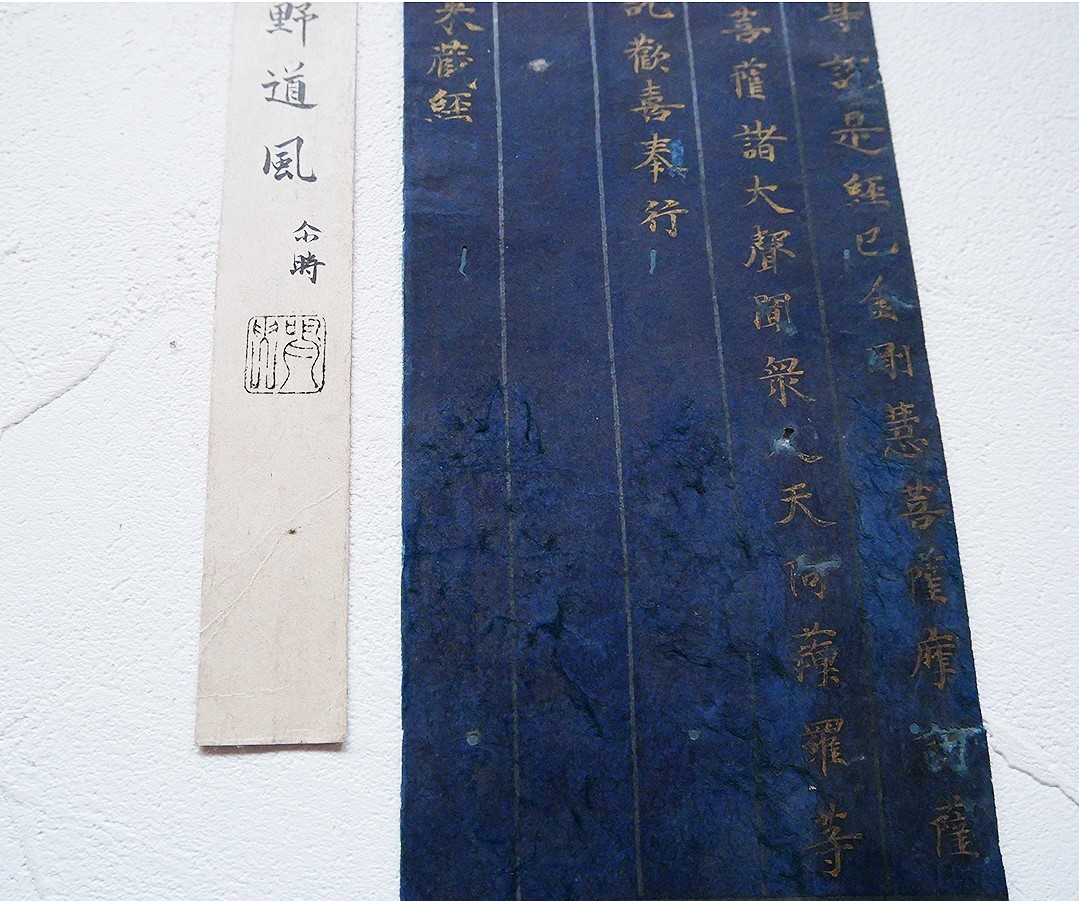 尊說是經已金剛慧菩薩摩訶薩
菩薩諸大聲聞衆人天阿蘓羅等
歡喜奉行
来藏經
野道風
尒時